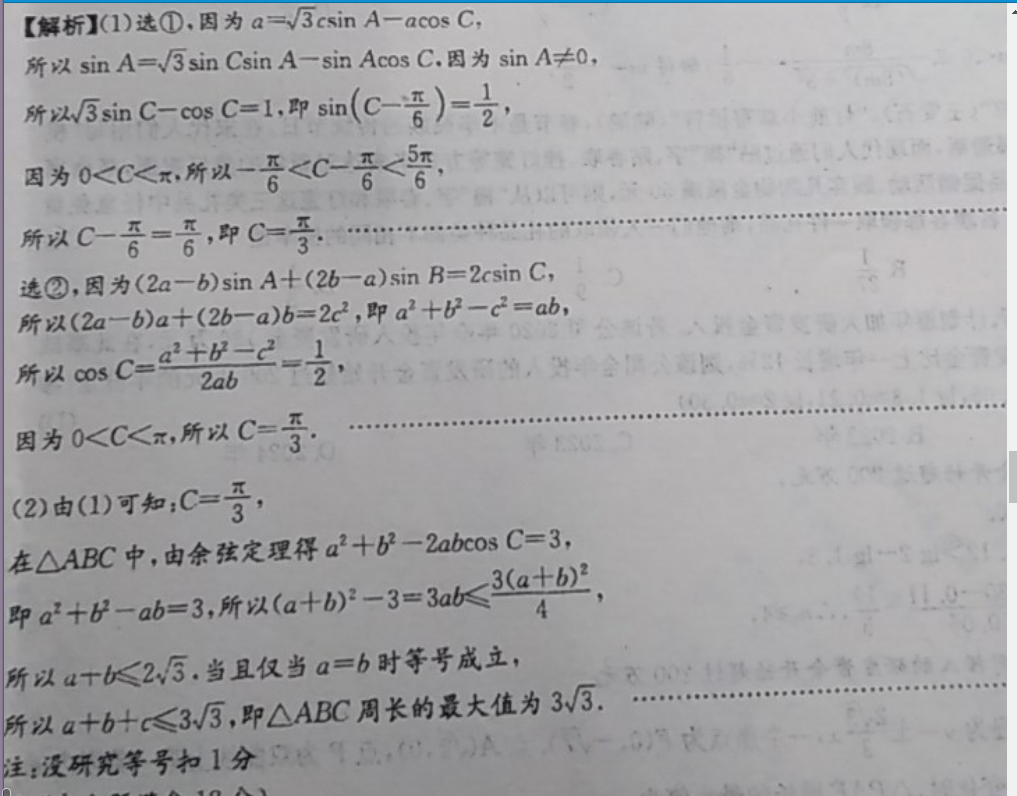 【解析】(1)选①,因为 a=√3csin A-acos C,
所以 sin A=√3sin Csin A-sin Acos C.因为 sin A≠0,
所以√3sin C-cos C=1,即 sin(C-π/6)=1/2,
因为 0<C<π,所以-π/6<C-π/6<5π/6,
所以 C-π/6=π/6,即 C=π/3.
选②,因为(2a-b)sin A+(2b-a)sin B=2csin C,
所以(2a-b)a+(2b-a)b=2c²,即 a²+b²-c²=ab,
所以 cos C=(a²+b²-c²)/2ab=1/2,
因为 0<C<π,所以 C=π/3.
(2)由(1)可知:C=π/3,
在△ABC 中,由余弦定理得 a²+b²-2abcos C=3,
即 a²+b²-ab=3,所以(a+b)²-3=3ab≤3(a+b)²/4,
所以 a+b≤2√3.当且仅当 a=b 时等号成立,
所以 a+b+c≤3√3,即△ABC 周长的最大值为 3√3.
注:没研究等号扣 1 分